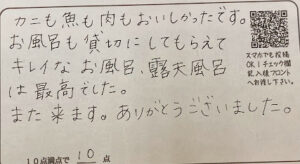 カニも魚も肉もおいしかったです。
お風呂も貸切にしてもらえて
キレイなお風呂、露天風呂
は最高でした。
また来ます。ありがとうございました。
スマホでも投稿
OK！チェック欄
記入後フロント
へお渡し下さい。
10点満点で 10 点